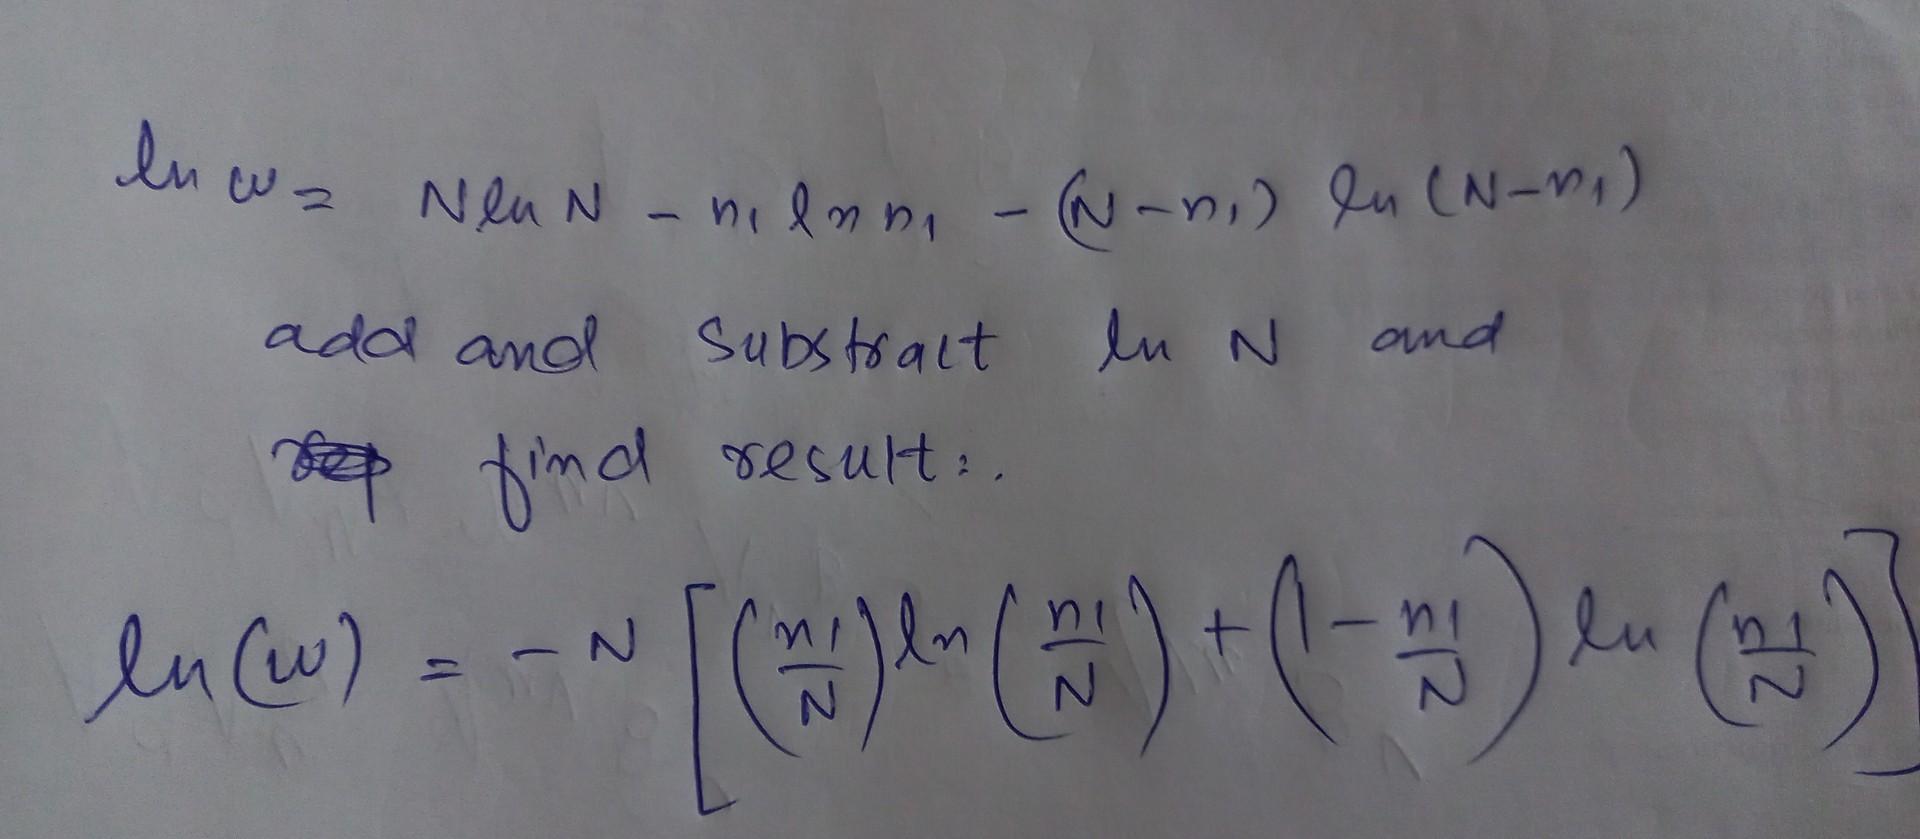 ln w = N ln N - n₁ ln n₁ - (N-n₁) ln (N-n₁)
add and substract ln N and
find result:.
ln(w) = -N [(n₁/N) ln (n₁/N) + (1 - n₁/N) ln (n₁/N)]